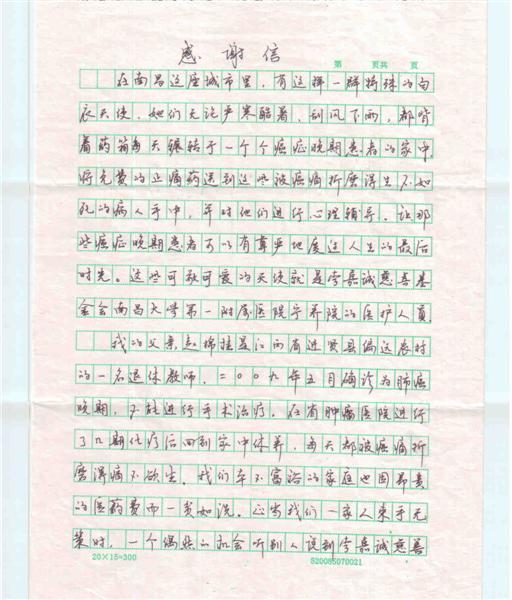 感谢信
第 页共 页
在南昌这座城市里，有这样一群特殊的白
衣天使，她们无论严寒酷暑，刮风下雨，都背
着药箱每天辗转于一个个癌症晚期患者的家中
将免费的止痛药送到这些被癌痛折磨得生不如
死的病人手中，并对他们进行心理辅导。让那
些癌症晚期患者可以有尊严地度过人生的最后
时光。这些可敬可爱的天使就是李嘉诚慈善基
金会南昌大学第一附属医院宁养院的医护人员
我的父亲赵棉挂是江西省进贤县偏远农村
的一名退休教师，二00九年五月确诊为肺癌
晚期，不能进行手术治疗。在省肿瘤医院进行
了几期化疗后回到家中休养，每天都被癌痛折
磨得痛不欲生。我们本不富裕的家庭也因昂贵
的医药费而一贫如洗。正当我们一家人束手无
策时，一个偶然的机会听别人说到李嘉诚慈善
20×15=300
S20085070021